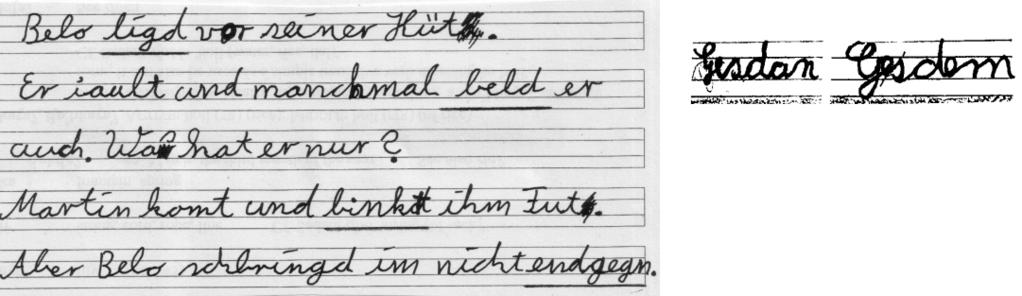 Belo ligd vor seiner Hüt.
Er iault und manchmal beld er
auch. Was hat er nur?
Martin komt und binkt ihm Fut.
Aber Belo schbringd im nicht endgegn.
Gesdan Gesdern